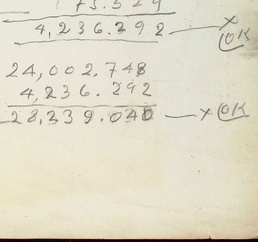 175.529
4,236.292 — x OK
24,002.748
4,236.292
28,239.040 — x OK